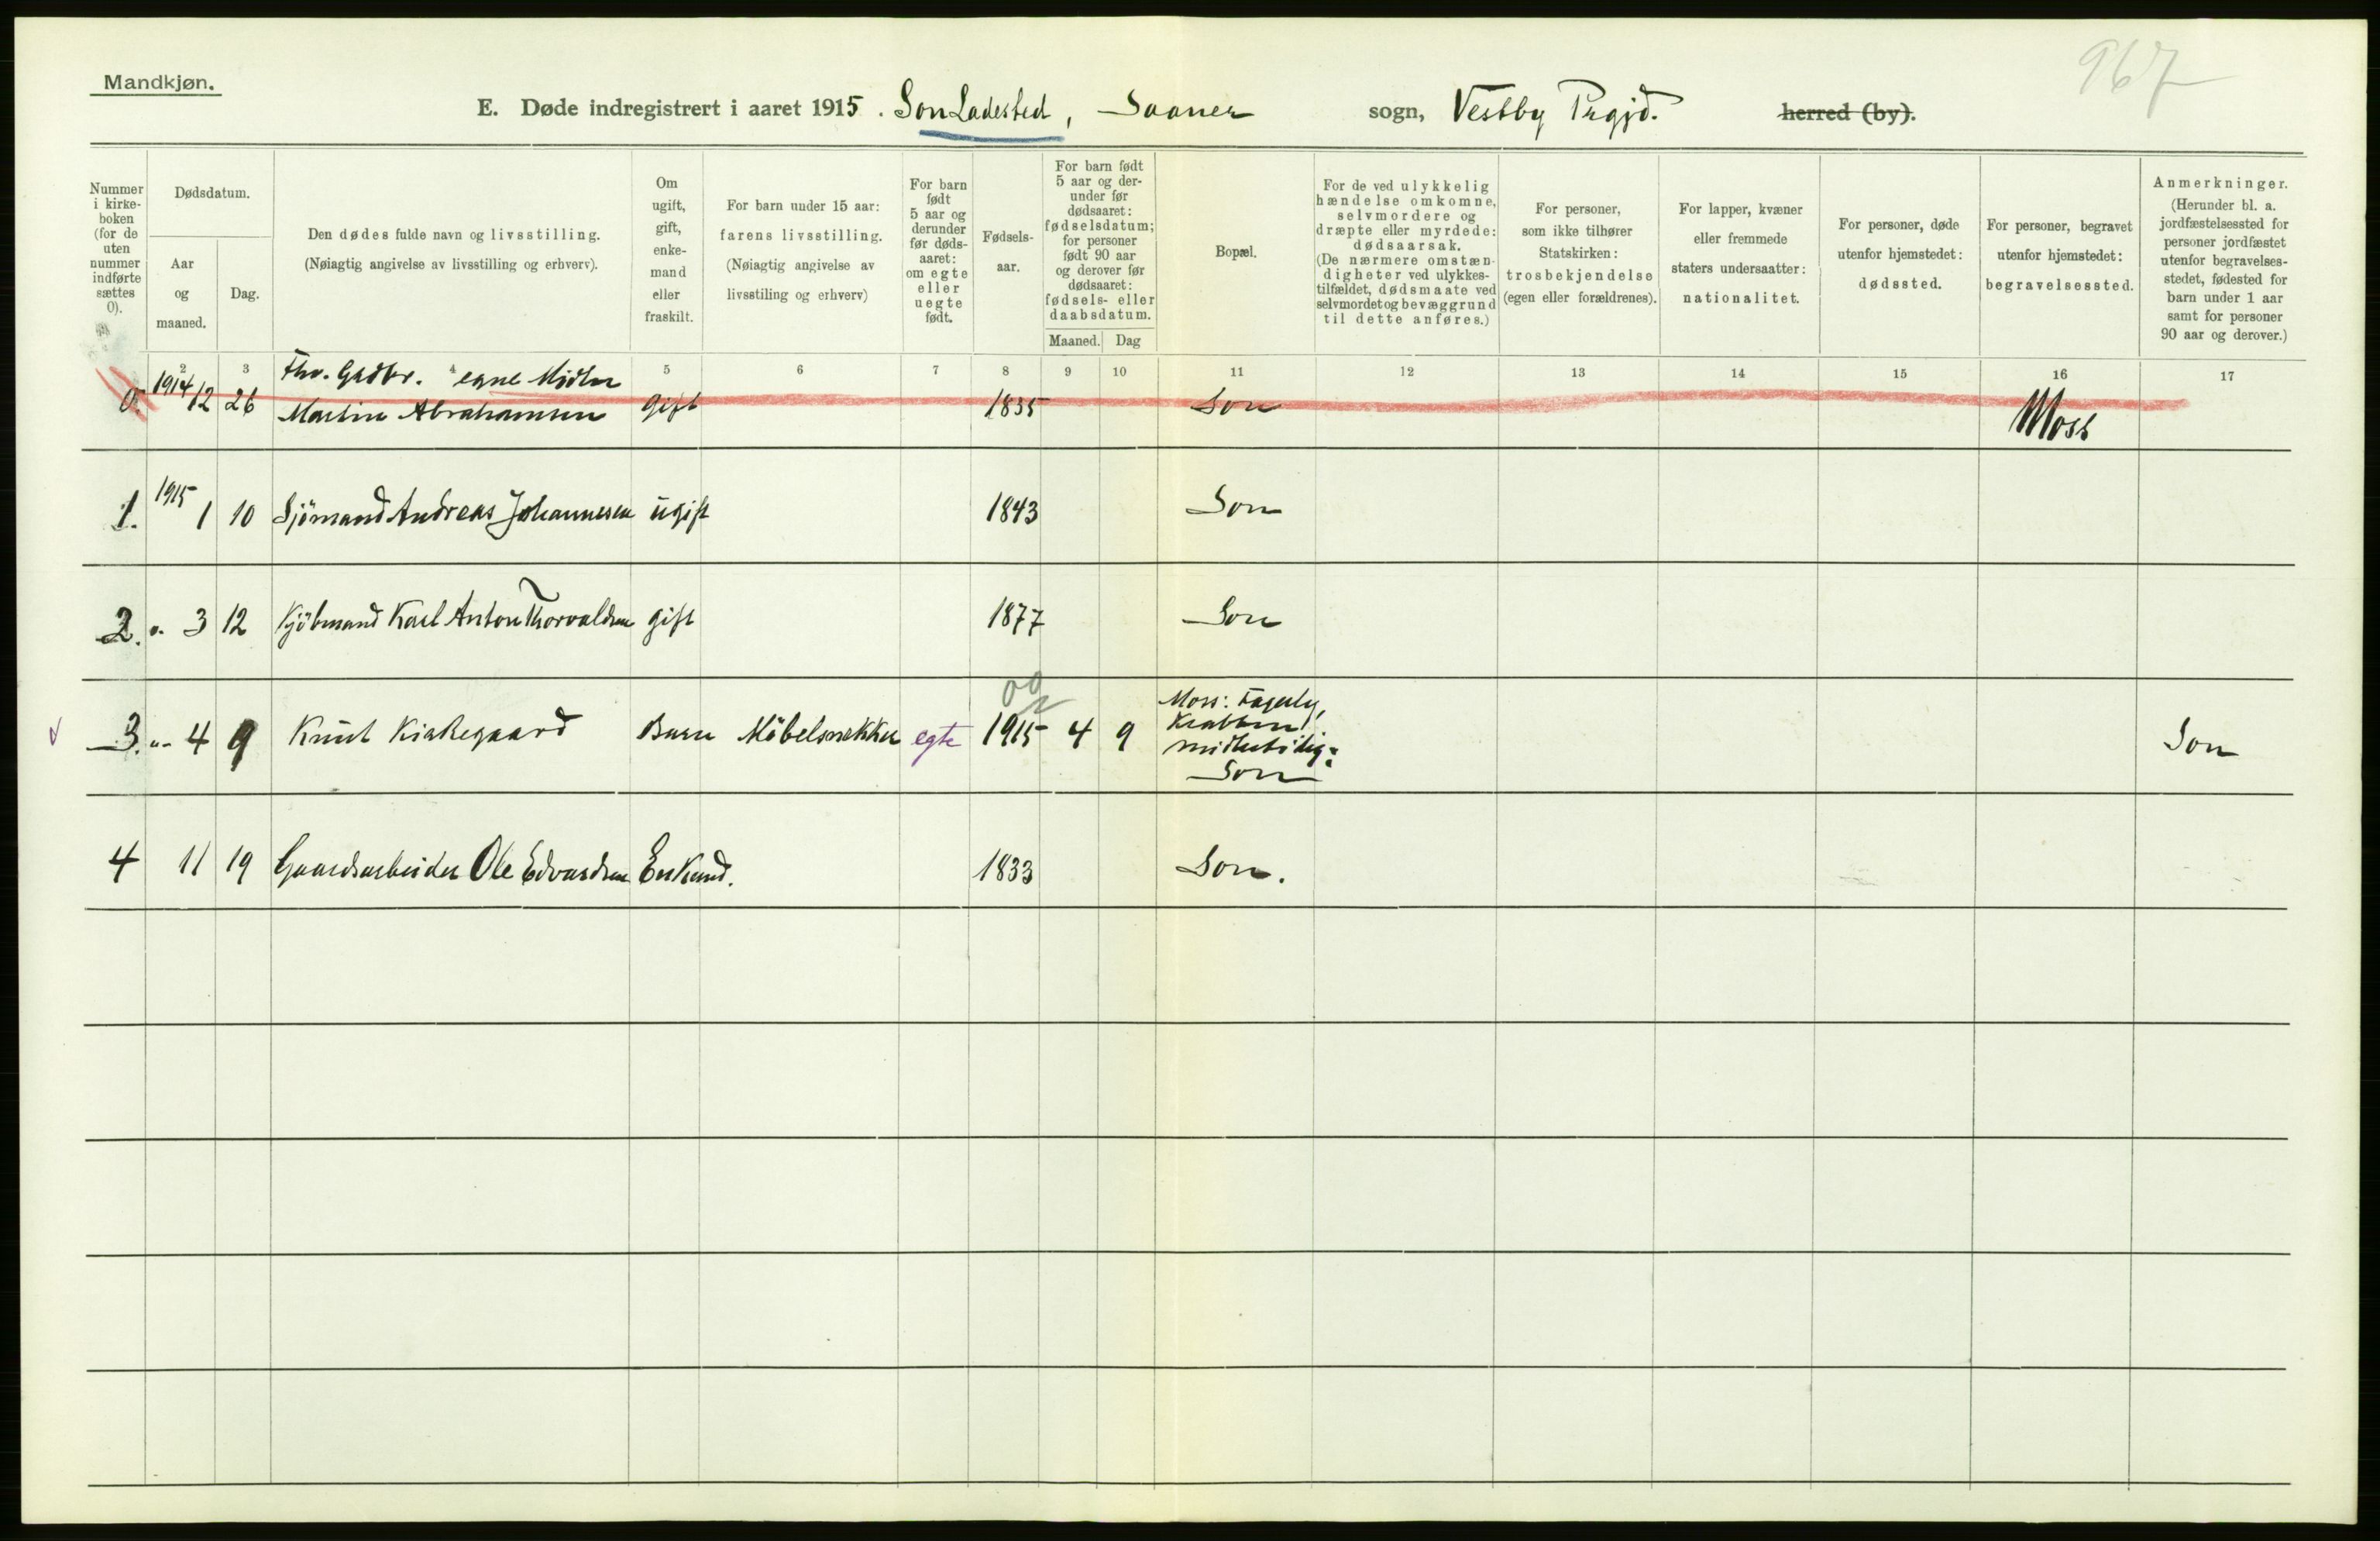 967
Mandkjøn.
E. Døde indregistrert i aaret 1915. Son Ladested, Saaner sogn, Vestby Prgjd. herred (by).
Nummer i kirke-boken (for de uten nummer indførte sættes 0).
Dødsdatum.
Aar og maaned.
Dag.
Den dødes fulde navn og livsstilling.
(Nøiagtig angivelse av livsstilling og erhverv).
Om ugift, gift, enke-mand eller fraskilt.
For barn under 15 aar: farens livsstilling.
(Nøiagtig angivelse av livsstiling og erhverv)
For barn født 5 aar og derunder før døds-aaret: om egte eller uegte født.
Fødsels-aar.
For barn født 5 aar og der-under før dødsaaret: fødselsdatum; for personer født 90 aar og derover før dødsaaret: fødsels- eller daabsdatum.
Maaned. Dag
Bopæl.
For de ved ulykkelig hændelse omkomne, selvmordere og dræpte eller myrdede: dødsaarsak.
(De nærmere omstæn-digheter ved ulykkes-tilfældet, dødsmaate ved selvmordet og bevæggrund til dette anføres.)
For personer, som ikke tilhører Statskirken: trosbekjendelse (egen eller forældrenes).
For lapper, kvæner eller fremmede staters undersaatter: nationalitet.
For personer, døde utenfor hjemstedet: dødssted.
For personer, begravet utenfor hjemstedet: begravelsessted.
Anmerkninger.
(Herunder bl. a. jordfæstelsessted for personer jordfæstet utenfor begravelses-stedet, fødested for barn under 1 aar samt for personer 90 aar og derover.)
2 3 4 5 6 7 8 9 10 11 12 13 14 15 16 17
Fhv. Gadbr. egne Midler
0. 1914 12 26 Martin Abrahamsen gift 1835 Son Moss
1. 1915 1 10 Sjömand Andreas Johannesen ugift 1843 Son
2. " 3 12 Kjöbmand Karl Anton Thorvaldsen gift 1877 Son
3. " 4 9 Knut Kirkegaard Barn Möbelsnekker egte 1915 4 9 Moss: Fagerly, Krabben midlertidig: Son Son
4 11 19 Gaardsarbeider Ole Edvardsen Enkemd. 1833 Son.